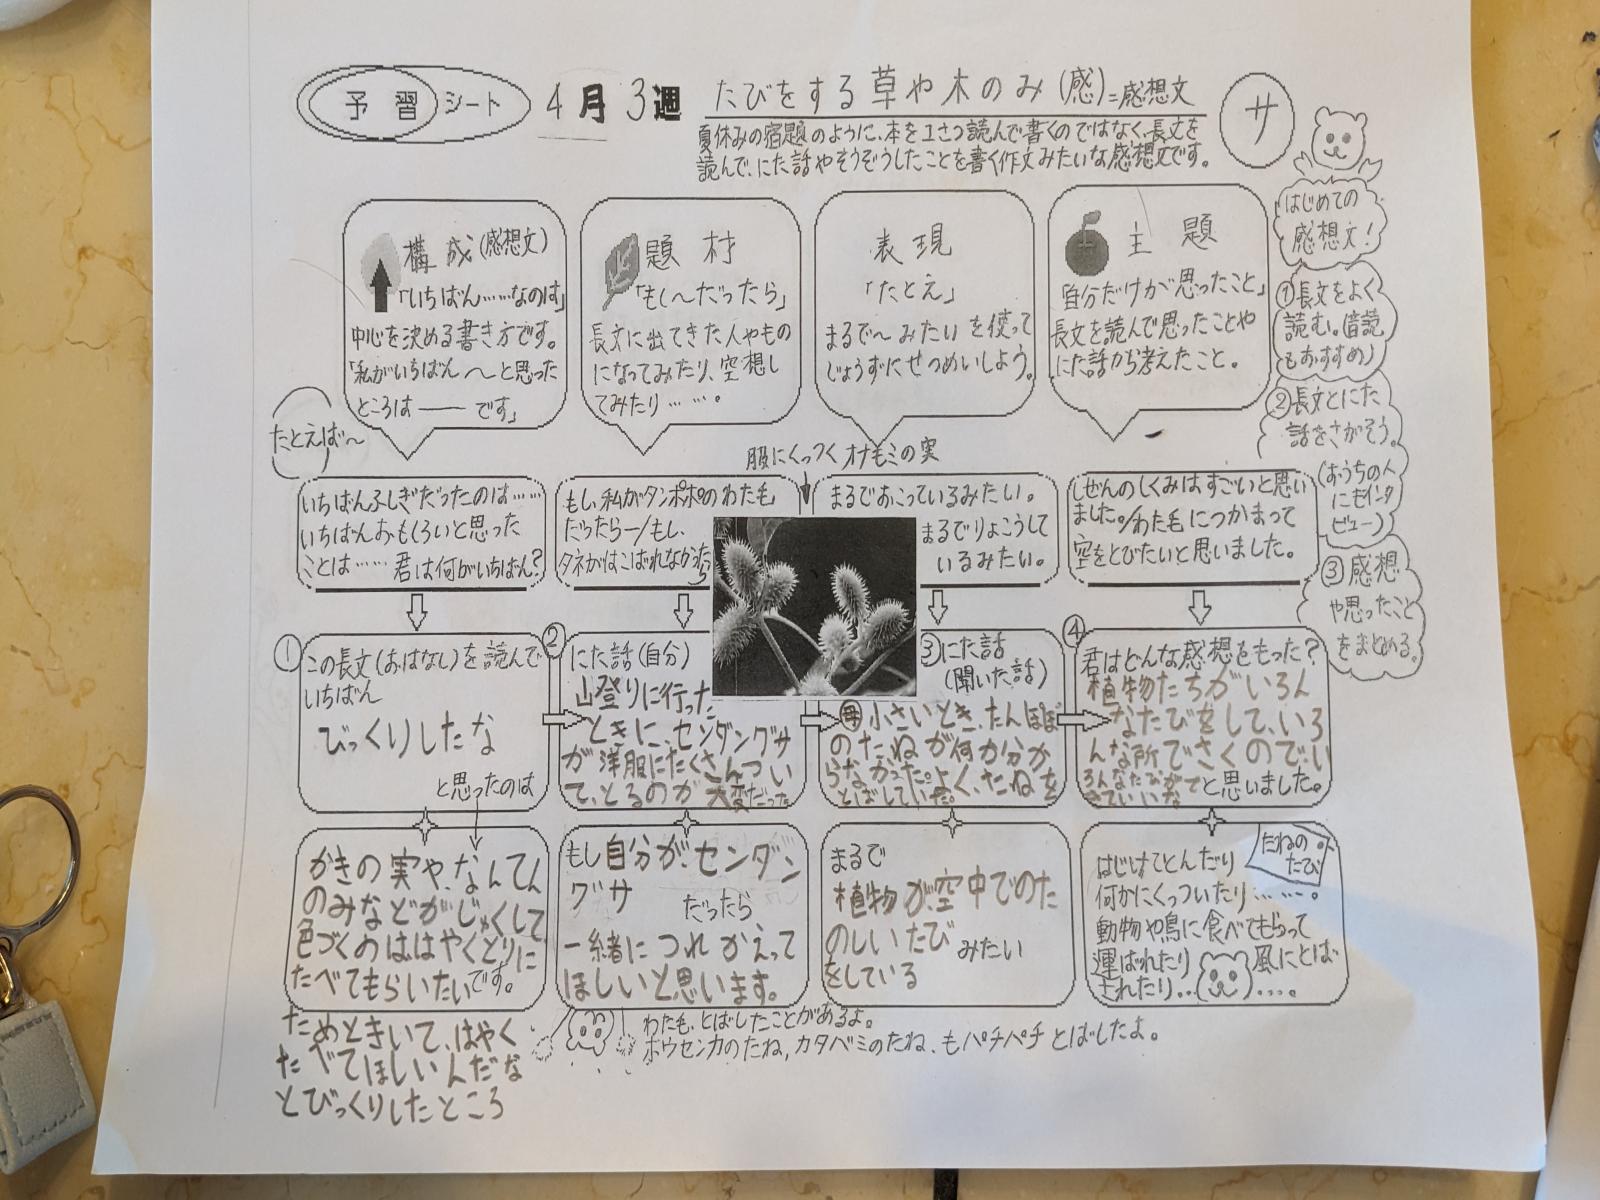 予習シート 4月3週
たびをする草や木のみ(感)=感想文
夏休みの宿題のように、本を1さつ読んで書くのではなく、長文を
読んで、にた話やそうぞうしたことを書く作文みたいな感想文です。
サ
はじめての
感想文!
①長文をよく
読む。(音読
もおすすめ)
②長文とにた
話をさがそう。
(おうちの人
にもインタ
ビュー)
③感想
や思ったこと
をまとめる。
構成(感想文)
「いちばん……なのは」
中心を決める書き方です。
「私がいちばん〜と思った
ところは――です」
題材
「もし〜だったら」
長文に出てきた人やもの
になってみたり、空想し
てみたり……。
表現
「たとえ」
まるで〜みたいを使って
じょうずにせつめいしよう。
主題
「自分だけが思ったこと」
長文を読んで思ったことや
にた話から考えたこと。
たとえば〜
いちばんふしぎだったのは……
いちばんおもしろいと思った
ことは……君は何がいちばん?
もし、私がタンポポのわた毛
だったら―/もし、
タネがはこばれなかったら
服にくっつくオナモミの実
まるでおこっているみたい。
まるでりょこうして
いるみたい。
しぜんのしくみはすごいと思い
ました。/わた毛につかまって
空をとびたいと思いました。
①
この長文(おはなし)を読んで
いちばん
びっくりしたな
と思ったのは
かきの実や、なんてん
のみなどがじゅくして
色づくのははやくとりに
たべてもらいたいです。
ためときいて、はやく
たべてほしいんだな
とびっくりしたところ
②
にた話(自分)
山登りに行った
ときに、センダングサ
が洋服にたくさんつい
て、とるのが大変だった
もし自分が、センダン
グサ だったら
一緒につれかえって
ほしいと思います。
③にた話
(聞いた話)
母小さいとき、たんぽぽ
のたねが何か分か
らなかった。よく、たねを
とばしていた。
まるで
植物が空中でのた
のしいたび みたい
をしている
④
君はどんな感想をもった?
植物たちがいろん
なたびをして、いろ
んな所でさくので、い
ろんなたびがで
きていいな と思いました。
たねの
たび
はじけてとんだり
何かにくっついたり……。
動物や鳥に食べてもらって
運ばれたり 風にとば
されたり‥ ….。
わたも、とばしたことがあるよ。
ホウセンカのたね,カタバミのたね、もパチパチとばしたよ。